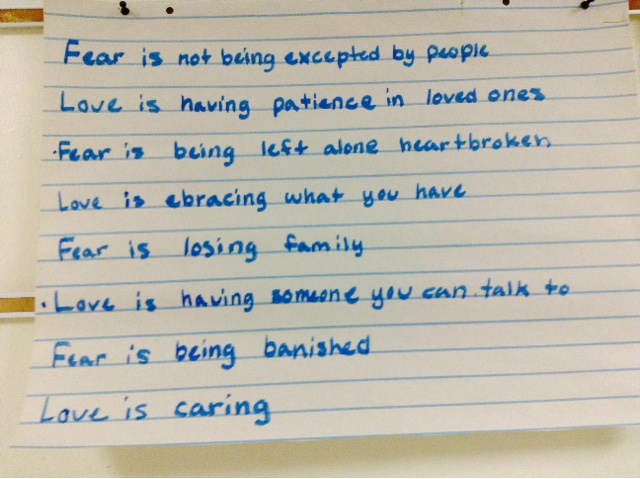 Fear is not being excepted by people
Love is having patience in loved ones
·Fear is being left alone heartbroken
Love is ebracing what you have
Fear is losing family
·Love is having someone you can talk to
Fear is being banished
Love is caring